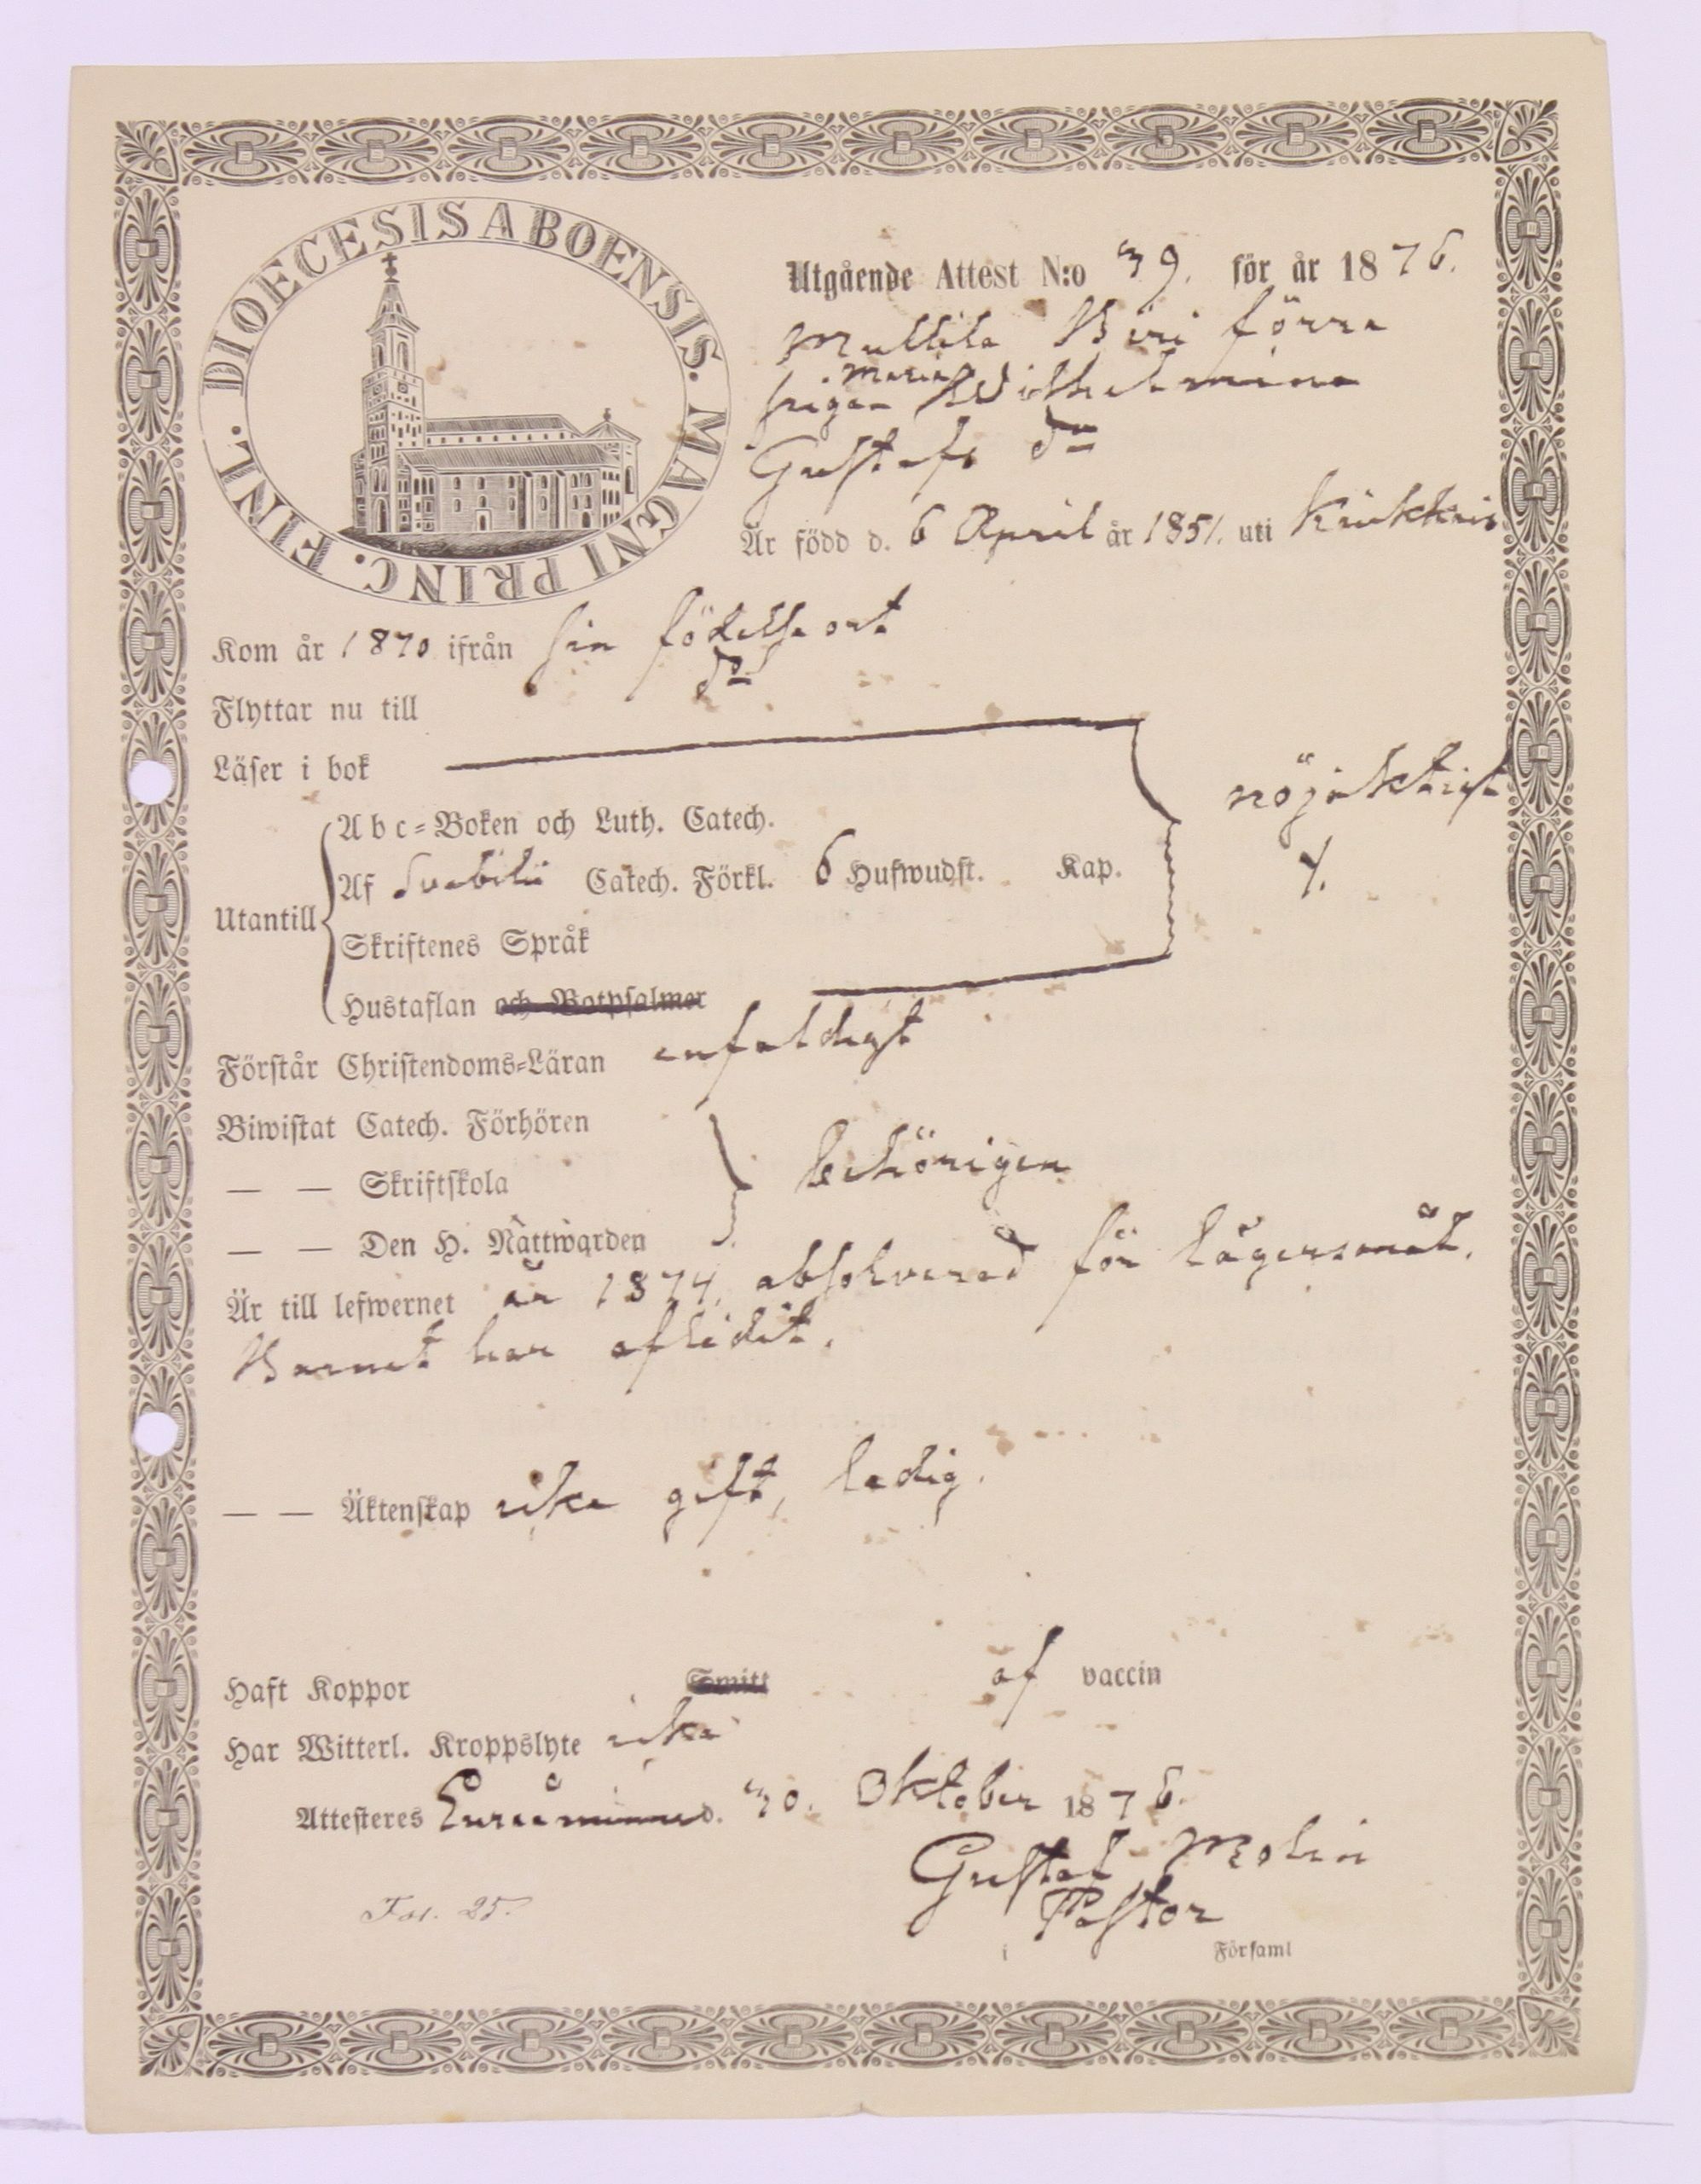 DIOECESIS ABOENSIS. MAGNI PRINC. FINL.
Utgående Attest N:o 39. för år 1876.
förra
pigan Maria Wilhelmina
Gustafs dr
Är född d. 6 April år 1851. uti Kiukkais
Kom år 1870 ifrån sin födelseort
Flyttar nu till do
Läser i bok
nöjaktigt
Abc-Boken och Luth. Catech.
Utantill Af Svebilii Catech. Förkl. 6 Hufwudst. Kap.
Skriftenes Språk
Hustaflan och Botpsalmer
Förstår Christendoms-Läran enfaldigt
Biwistat Catech. Förhören
— — Skriftskola behörigen
— — Den H. Nattwarden
Är till lefwernet år 1874, absolverad för lägersmål.
Barnet har aflidit.
— — Äktenskap icke gift, ledig.
Haft Koppor Smitt af vaccin
Har Witterl. Kroppslyte icke
Attesteres Euraåminne d. 30. Oktober 1876.
Gustaf Molin
Pastor
Fol. 25.
i Församl